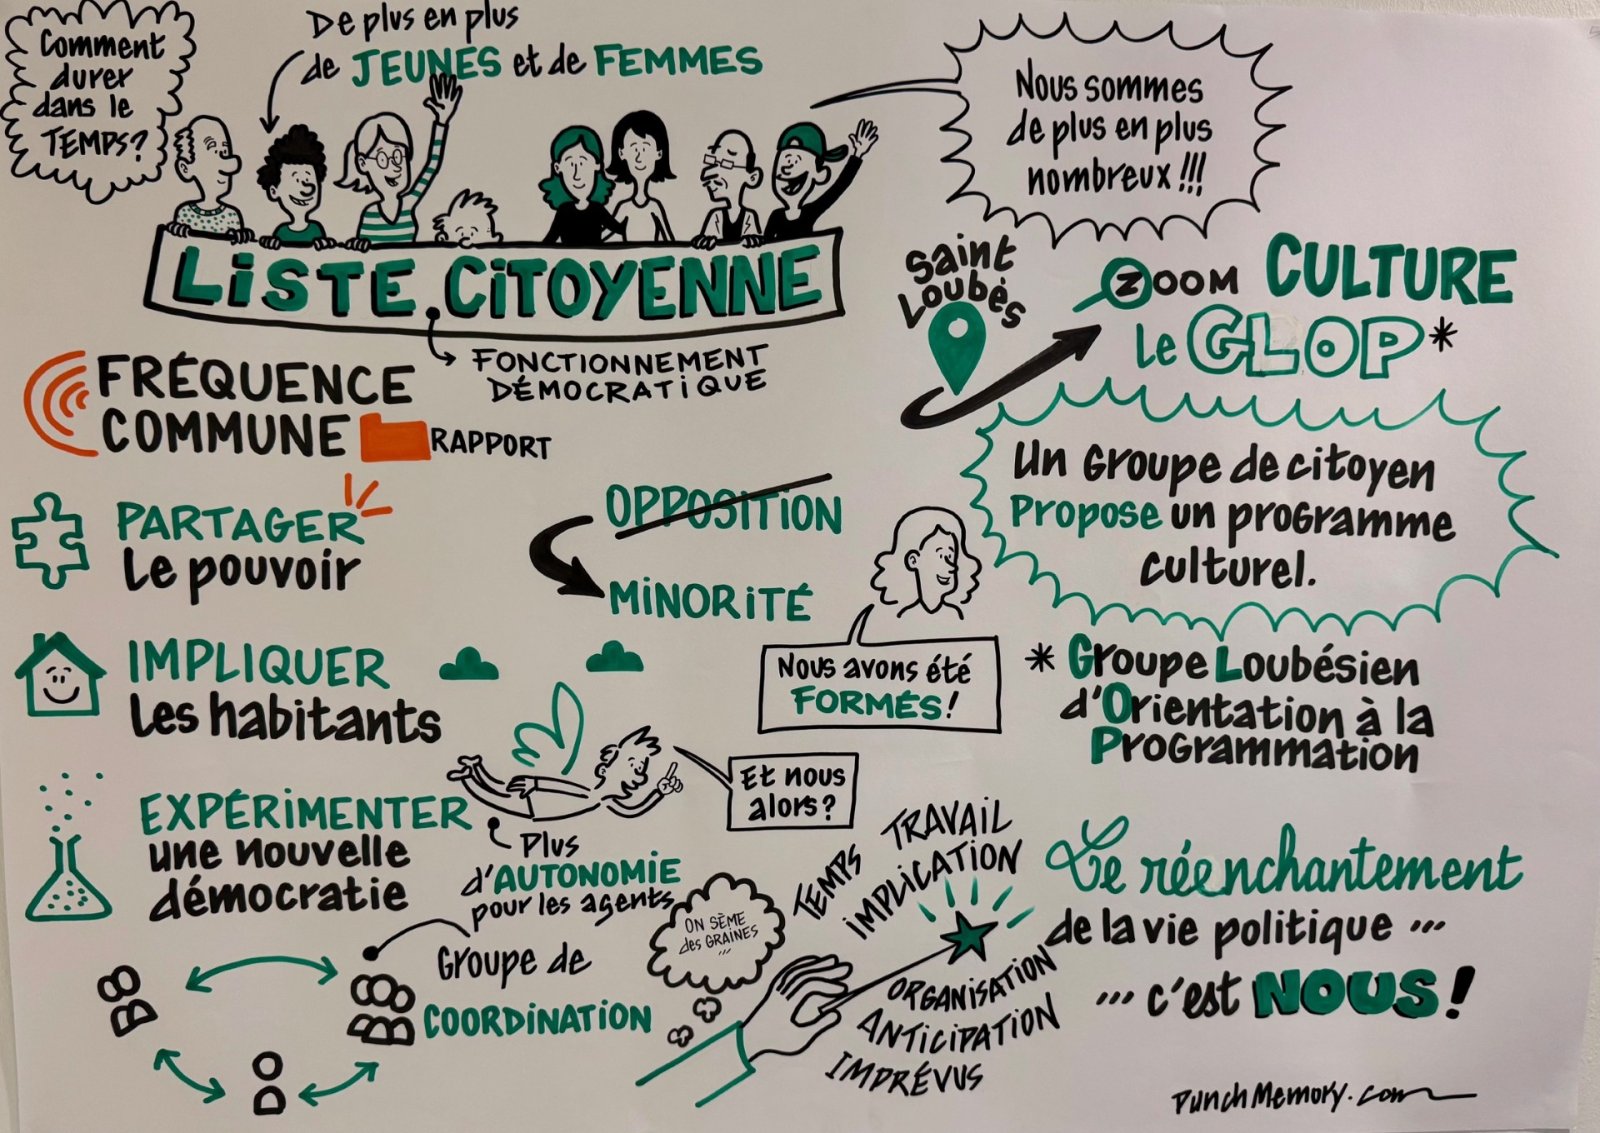 Comment
durer
dans le
TEMPS?
De plus en plus
de JEUNES et de FEMMES
Nous sommes
de plus en plus
nombreux !!!
LISTE CITOYENNE
FONCTIONNEMENT
DÉMOCRATIQUE
FRÉQUENCE
COMMUNE
RAPPORT
PARTAGER
Le pouvoir
IMPLIQUER
Les habitants
EXPÉRIMENTER
une nouvelle
démocratie
OPPOSITION
MINORITÉ
Nous avons été
FORMÉS !
Et nous
alors ?
Plus
d'AUTONOMIE
pour les agents
Groupe de
COORDINATION
ON SÈME
des GRAINES
...
TEMPS
TRAVAIL
IMPLICATION
ORGANISATION
ANTICIPATION
IMPRÉVUS
Saint
Loubès
ZOOM CULTURE
Le GLOP*
Un Groupe de citoyen
Propose un programme
culturel.
* Groupe Loubésien
d'Orientation à la
Programmation
Le réenchantement
de la vie politique ...
... c'est NOUS !
PunchMemory.com